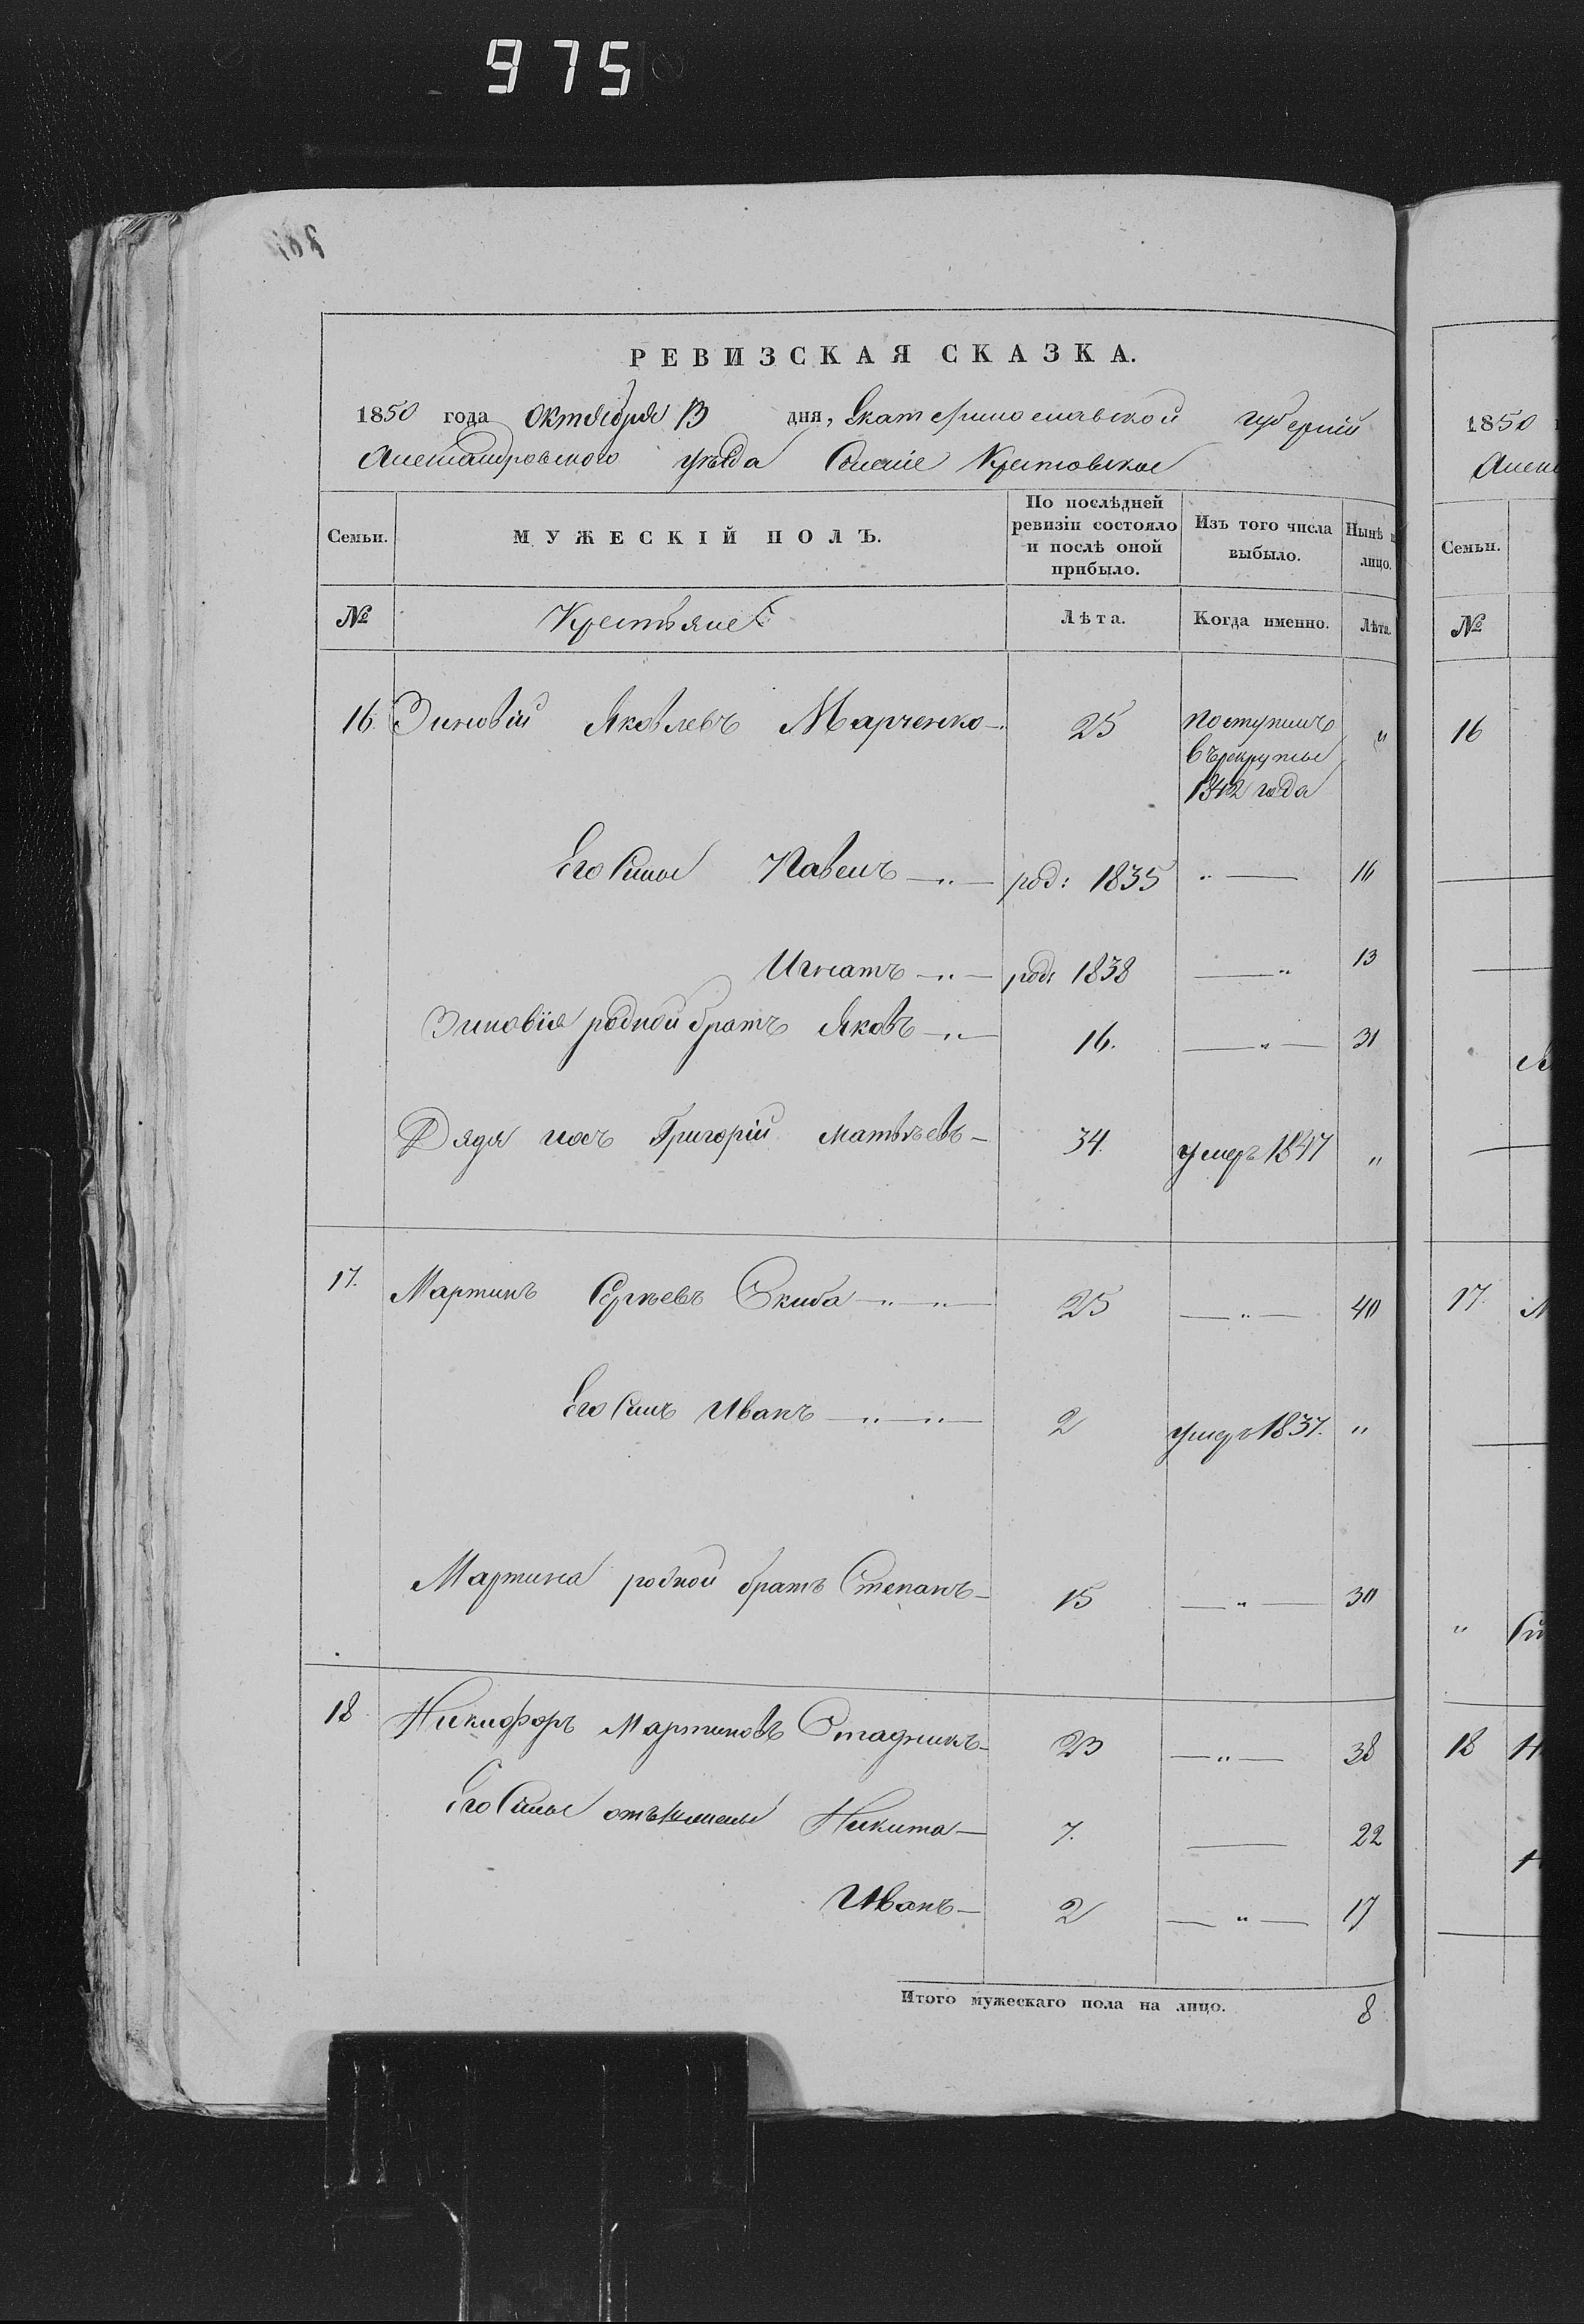 975
РЕВИЗСКАЯ СКАЗКА.
1850 года Октября 13 дня, Екатеринославской губерніи
Александровского уезда Селеніе Крестовское
Семьи. МУЖЕСКІЙ ПОЛЪ. По послѣдней ревизіи состояло и послѣ оной прибыло. Изъ того числа выбыло. Нынѣ лицо.
№ Крестьяне Лѣта. Когда именно. Лѣта.
16. Зиновій Яковлевъ Марченко 25 поступилъ "
въ рекруты
1842 года
Его Сыны Павелъ — " — род: 1835 " — 16
Игнатъ — " — род: 1838 — " 13
Зиновія родной братъ Яковъ — " — 16. — " — 31
Дядя Григорій Матвѣевъ — 34. умеръ 1847 "
17. Мартинъ Сергѣевъ Скиба — " — " — 25 — " — 40
Его Сынъ Иванъ — " — " — 2 умеръ 1837. "
Мартина родной братъ Степанъ — 15 — " — 30
18 Никифоръ Мартиновъ Стадникъ — 23 — " — 38
Его Сыны Никита — 7. — 22
Иванъ — 2 — " — 17
Итого мужескаго пола на лицо. 8
1850
Семьи.
№
16
17.
"
18